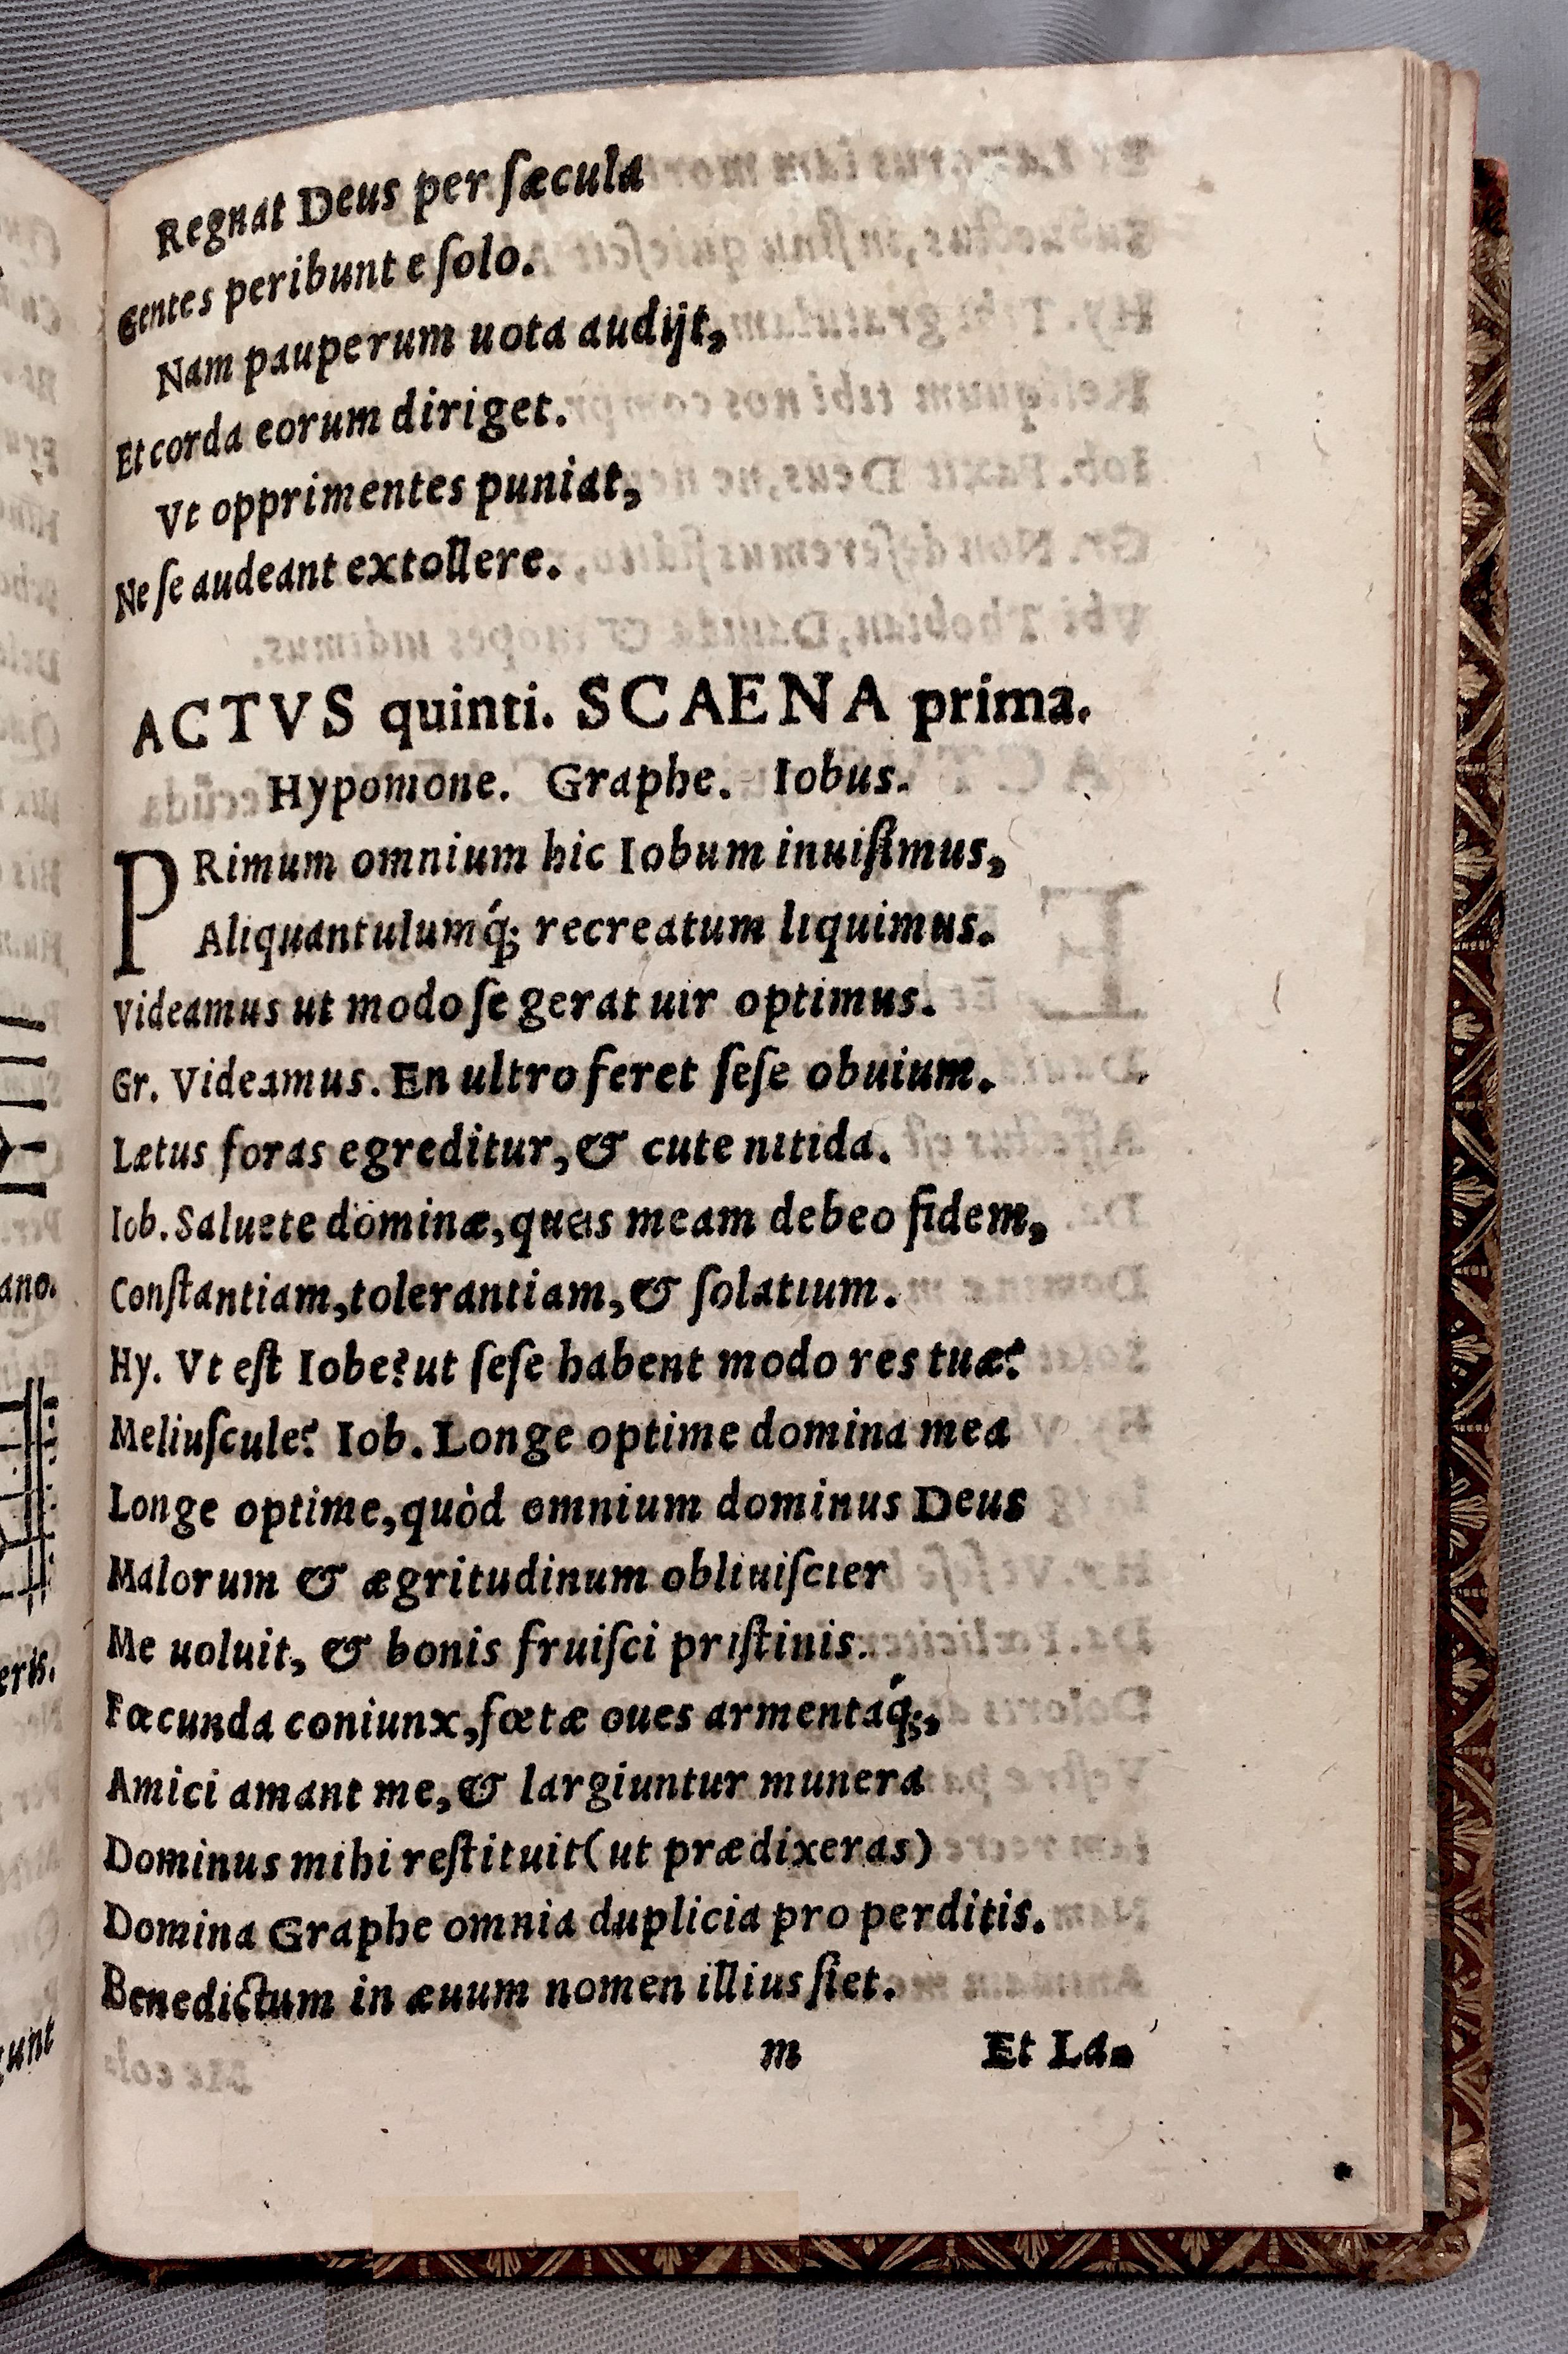 Regnat Deus per ſæcula
Gentes peribunt e ſolo.
Nam pauperum uota audijt,
Et corda eorum diriget.
Vt opprimentes puniat,
Ne ſe audeant extollere.
ACTVS quinti. SCAENA prima.
Hypomone. Graphe. Iobus.
PRimum omnium hic Iobum inuiſimus,
Aliquantulumq́; recreatum liquimus.
Videamus ut modo ſe gerat uir optimus.
Gr. Videamus. En ultro feret ſeſe obuium.
Lætus foras egreditur, & cute nitida.
Iob. Saluete dominæ, queis meam debeo fidem,
Conſtantiam, tolerantiam, & ſolatium.
Hy. Vt eſt Iobe? ut ſeſe habent modo res tuæ?
Meliuſcule? Iob. Longe optime domina mea
Longe optime, quòd omnium dominus Deus
Malorum & ægritudinum obliuiſcier
Me uoluit, & bonis fruiſci priſtinis.
Fœcunda coniunx, fœtæ oues armentaq́;,
Amici amant me, & largiuntur munera
Dominus mihi reſtituit (ut prædixeras)
Domina Graphe omnia duplicia pro perditis.
Benedictum in æuum nomen illius fiet.
m Et La-